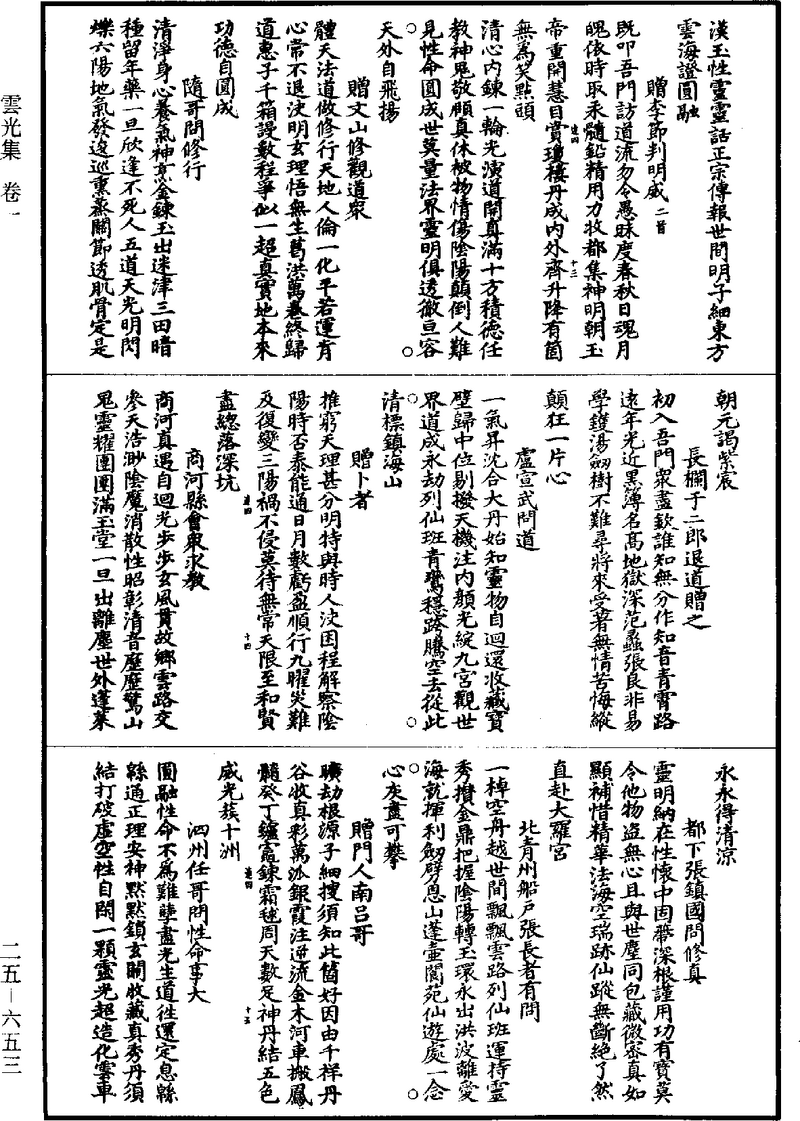 漢玉性靈靈話正宗傳報世間明子細東方
雲海證圓融
贈李節判明威二首
既叩吾門訪道流勿令愚昧度春秋日魂月
魄依時取汞髓鉛精用力收都集神明朝玉
帝重開慧目賞瓊樓丹成內外齊升降有箇
無為笑點頭
清心內鍊一輪光演道開真滿十方積德任
教神鬼敬願真休被物情傷陰陽顛倒人難
見性命圓成世莫量法界靈明俱透徹亘容
天外自飛揚
贈文山修觀道眾
體天法道做修行天地人倫一化平若運肯
心常不退決明玄理悟無生葛洪萬卷終歸
道惠子千箱謾數程爭似一超真實地本來
功德自圓成
隨哥問修行
清淨身心養氣神烹金鍊玉出迷津三田暗
種留年藥一旦欣逢不死人五道天光明閃
爍六陽地氣發逡巡熏蒸關節透肌骨定是
朝元謁紫宸
長欄于二郎退道贈之
初入吾門眾盡欽誰知無分作知音青霄路
遠年光近黑簿名高地獄深范蠡張良非易
學鑊湯劒樹不難尋將來受著無情苦悔縱
顛狂一片心
盧宣武問道
一氣昇沈合大丹始知靈物自迴還收藏寶
璧歸中位剔撥天機注內顏光綻九宮觀世
界道成永劫列仙班青鸞穩路騰空去從此
清標鎮海山
贈卜者
推窮天理甚分明特與時人決困程解察陰
陽時否泰能通日月數虧盈順行九曜災難
及復變三陽禍不侵莫待無常天限至和賢
盡總落深坑
商河縣會眾求教
商河真遇自迴光步步玄風貫故鄉雲路交
參天浩渺陰魔消散性昭彰清音歷歷驚山
鬼靈耀團團滿玉堂一旦出離塵世外蓬萊
永永得清涼
都下張鎮國問修真
靈明納在性懷中固蔕深根謹用功有寶莫
令他物盜無心且與世塵同包藏微密真如
顯補惜精華法海空瑞跡仙蹤無斷絕了然
直赴大羅宮
北青州船戶張長者有問
一棹空舟越世間飄飄雲路列仙班運持靈
秀攢金鼎把握陰陽轉玉環永出洪波離愛
海就揮利劒劈恩山蓬壺閬苑仙遊處一念
心灰盡可攀
贈門人南呂哥
曠劫根源子細搜須知此箇好因由千祥丹
谷收真彩萬派銀霞注逆流金木河車搬鳳
髓癸丁鑪竈鍊霜毬周天數足神丹結五色
威光蔟十洲
泗州任哥問性命事大
圓融性命不為難孽盡光生道徃還定息緜
緜通正理安神默默鎖玄關收藏真秀丹須
結打破虛空性自閑一顆靈光超造化寥車
雲光集 卷一
二五—六五三